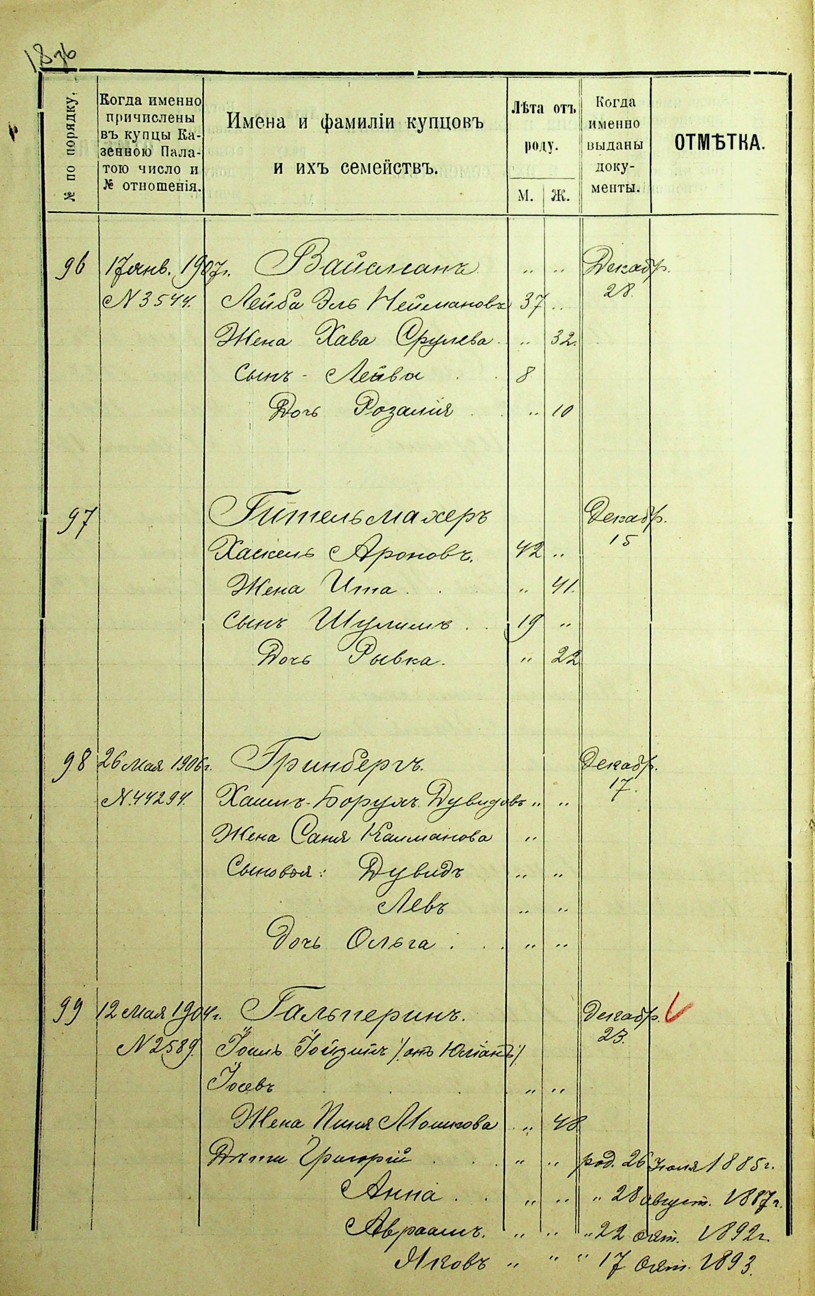 № по порядку.
Когда именно причислены въ купцы Казенною Палатою число и № отношенія.
Имена и фамиліи купцовъ и ихъ семействъ.
Лѣта отъ роду.
М. Ж.
Когда именно выданы документы.
ОТМѢТКА.
96 17 янв. 1907г. Вайсманъ " " Декабр.
N 3544. Лейба Эль Неймановъ 37 " 28.
Жена Хава Срулева " 32.
Сынъ - Лейва 8
Дочь Розалія " 10
97 Гительмахеръ Декабр.
Хаскель Ароновъ. 42 " 15
Жена Ита " 41.
Сынъ Шулимъ 19 "
Дочь Рывка. " 22
98 26 Мая 1906г. Гринбергъ. Декабр.
N. 44294. Хаимъ-Борухъ Дувидовъ " " 17.
Жена Саня Калманова "
Сыновья: Дувидъ " "
Левъ " "
Дочь Ольга " "
99 12 Мая 1904г. Гальперинъ. Декабр.
N 2589 Іоиль 23.
Іосевъ " "
Жена Мошкова " 48
Дѣти Григорій " " род. 26 Іюля 1885г.
Анна " " " 28 август. 1887г.
Авраамъ. " " " 22 окт. 1892г.
Яковъ " " " 17 Окт. 1893.